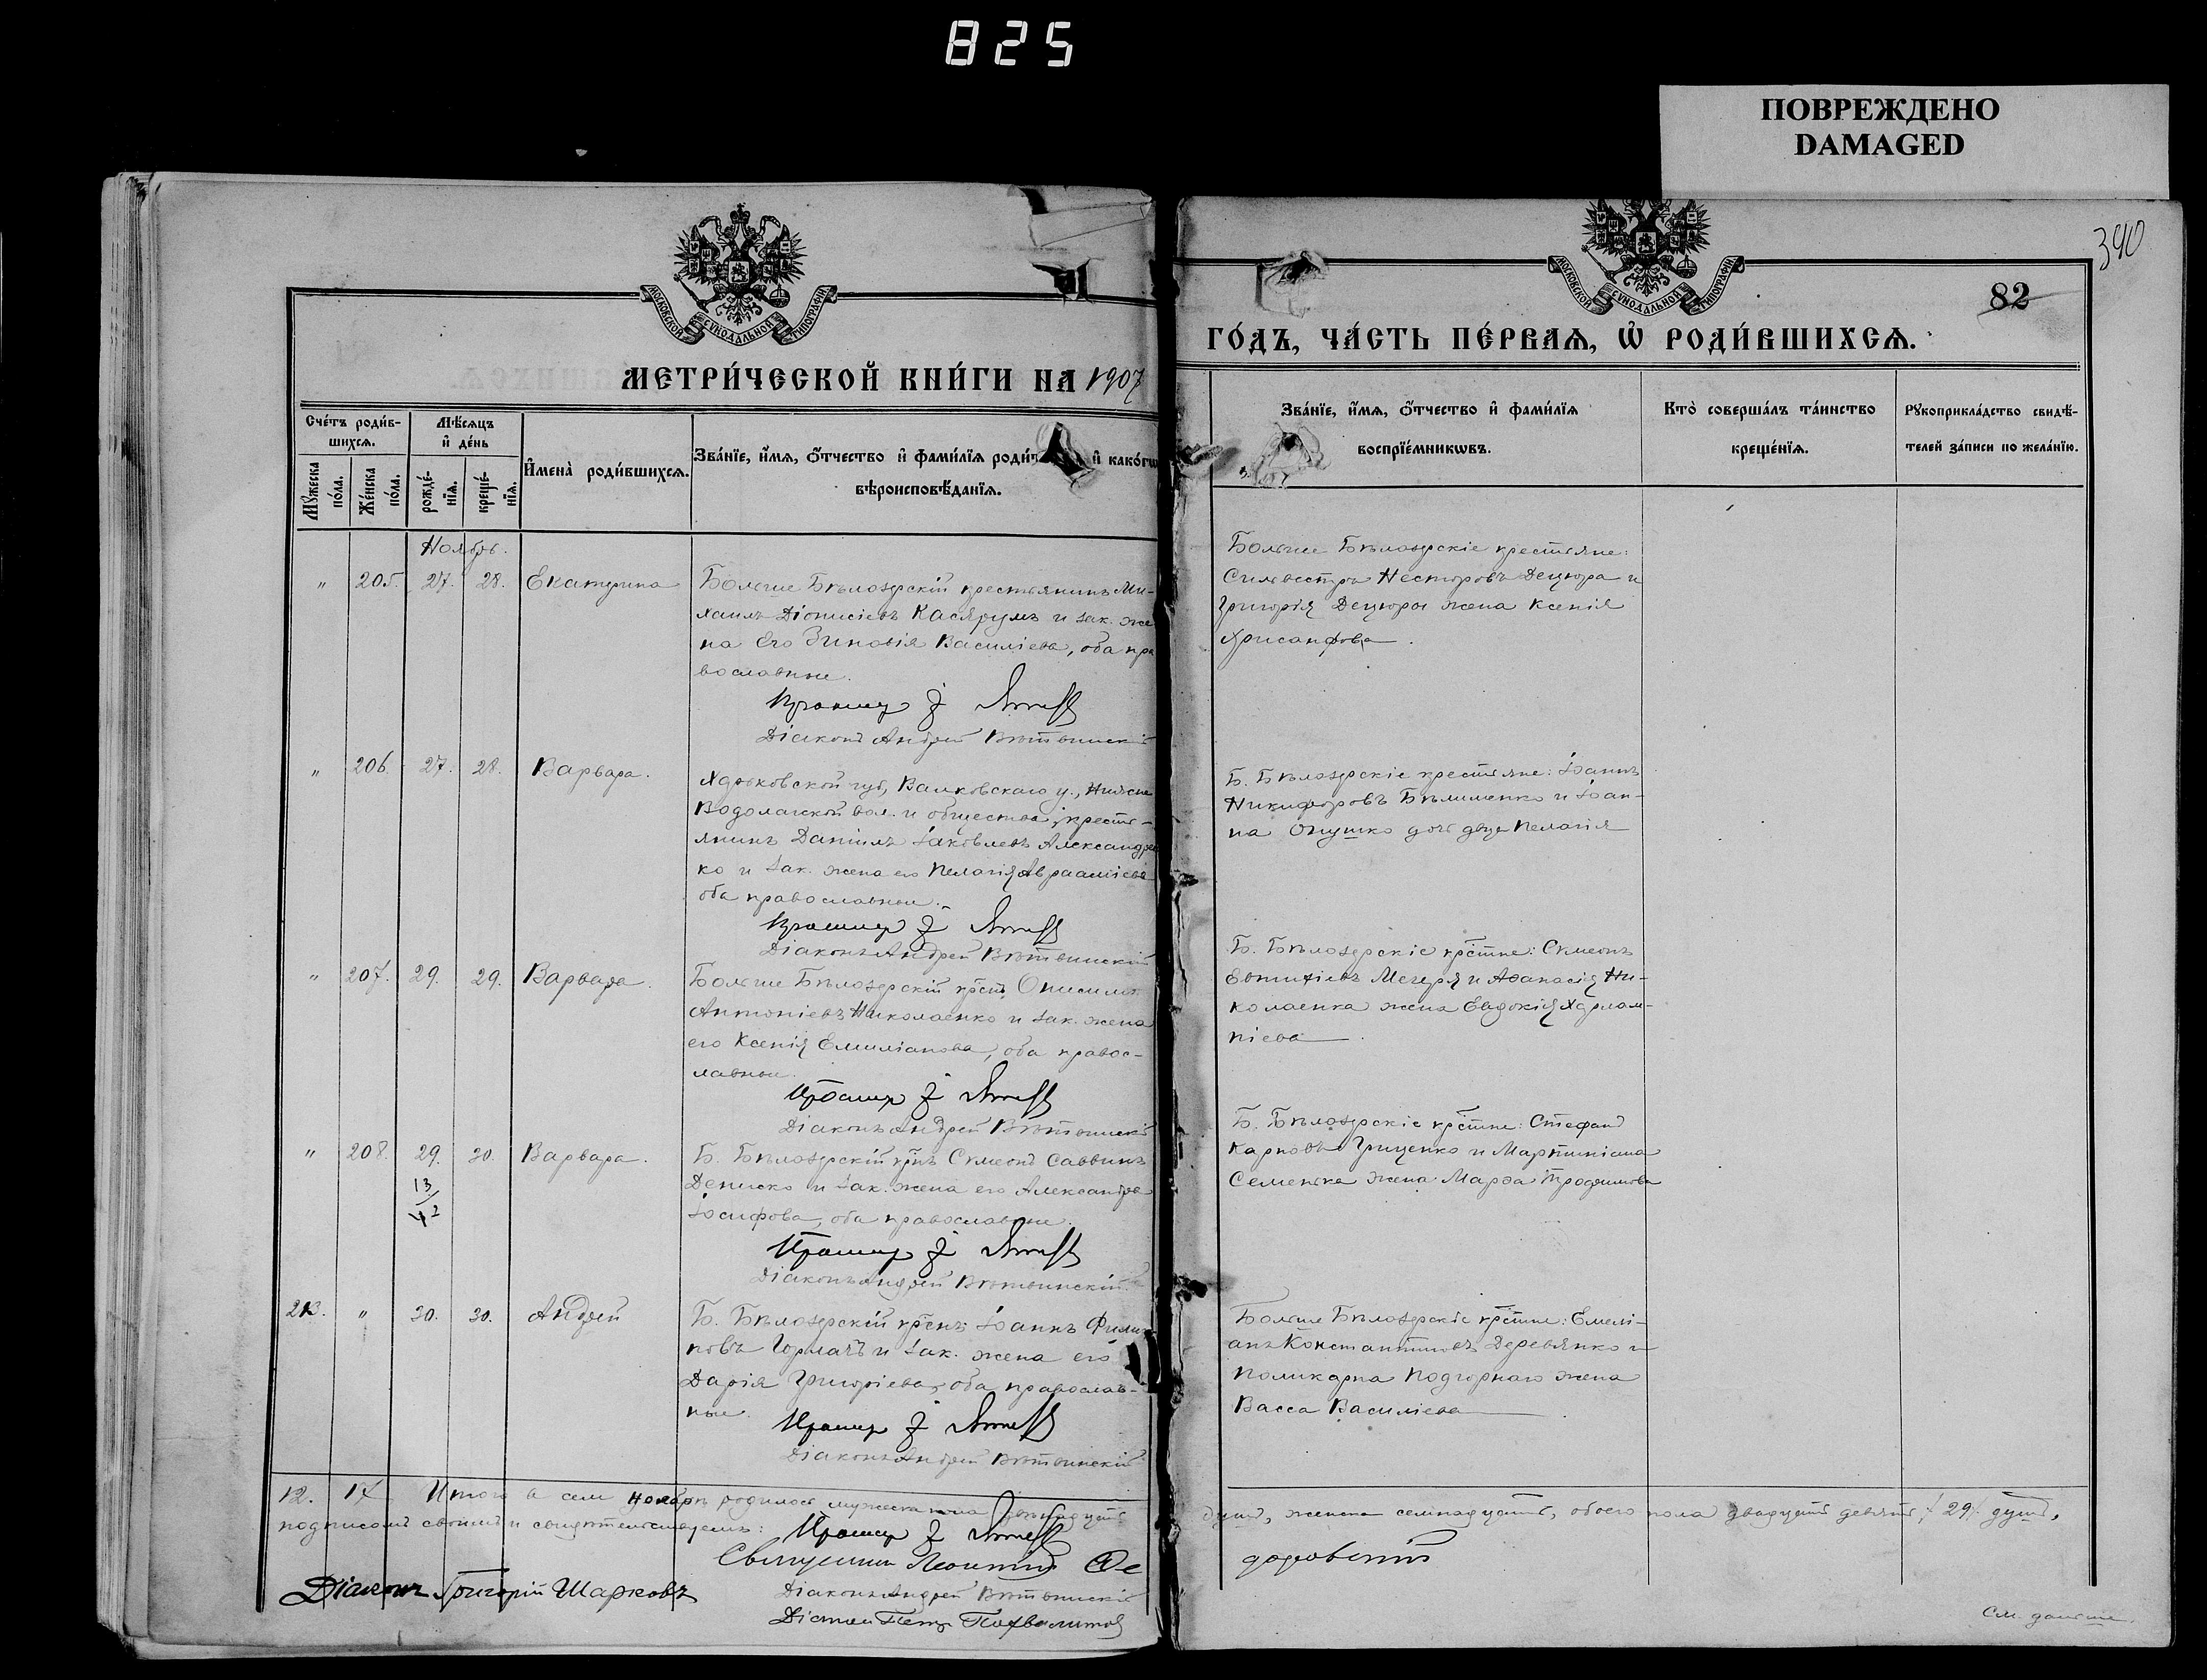 825
ПОВРЕЖДЕНО
DAMAGED
340
82
МОСКОВСКОЙ СѴНОДАЛЬНОЙ ТИПОГРАФИИ
МОСКОВСКОЙ СѴНОДАЛЬНОЙ ТИПОГРАФИИ
МЕТРИ́ЧЕСКОЙ КНИ́ГИ НА 1907
ГО́ДЪ, ЧА́СТЬ ПЕ́РВАѦ, Ѡ҆ РОДИ́ВШИХСѦ.
Сче́тъ роди́в-
шихсѧ.
Мꙋ́жеска по́ла.
Же́нска по́ла.
Мѣ́сѧцъ
и҆ де́нь
рожде́-
нїѧ.
креще́-
нїѧ.
И҆мена̀ роди́вшихсѧ.
Зва́нїе, и҆́мѧ, ѻ҆́тчество и҆ фами́лїѧ и҆ како́гѡ
вѣроисповѣ́данїѧ.
Зва́нїе, и҆́мѧ, ѻ҆́тчество и҆ фами́лїѧ
воспрїе́мникѡвъ.
Кто̀ соверша́лъ та́инство
креще́нїѧ.
Рꙋкоприкла́дство свидѣ́-
телей за́писи по жела́нїю.
Ноябрь.
" 205. 27. 28. Екатерина
Больше Бѣлозерскій крестьянинъ Ми-
хаилъ Діонисіевъ Касярумъ и зак. же
на его Зиновія Василіева, оба пра
вославные.
Діаконъ Андрей Вѣтвинскій
Больше Бѣлозерскіе крестьяне:
Сильвестръ Несторовъ Децюра и
Григорія Децюры жена Ксенія
Хрисанфова.
" 206. 27. 28. Варвара.
Харьковской губ., Валковскаго у., Нижне
Водолагской вол. и общества, кресть-
янинъ Даніилъ Іаковлевъ Александрен
ко и зак. жена его Пелагія Авраамiева
оба православные.
Діаконъ Андрей Вѣтвинскій
Б. Бѣлозерскіе крестьяне: Іоаннъ
Никифоровъ Бѣлименко и Іоан-
на Онушко дочь двца Пелагія
" 207. 29. 29. Варвара.
Больше Бѣлозерскій крстн. Онисимъ
Антоніевъ Николаенко и зак. жена
его Ксенія Емиліанова, оба правос-
лавные.
Діаконъ Андрей Вѣтвинскій
Б. Бѣлозерскіе крстне: Сѵмеонъ
Евтихіевъ Мечеря и Аѳанасія Ни-
колаенка жена Евдокія Харлам-
піева.
" 208. 29. 30. Варвара.
13
Б. Бѣлозерскій крнъ Сѵмеонъ Саввинъ
Дениско и зак. жена его Александра
Іосифова, оба православные.
Діаконъ Андрей Вѣтвинскій
Б. Бѣлозерскіе крстне: Стефанъ
Карповъ Гриценко и Мартиніана
Семенька жена Марѳа Трофимова
213. " 30. 30. Андрей
Б. Бѣлозерскій крснъ Іоаннъ Филип
повъ Горлачъ и зак. жена его
Дарія Григоріева, оба православ-
ные.
Діаконъ Андрей Вѣтвинскій
Больше Бѣлозерскіе крстне: Емелі-
анъ Константиновъ Деревянко и
Поликарпа Подгорнаго жена
Васса Василіева
12. 17. Итого в сем ноябрѣ родилось мужеска пола двѣнадцать
душъ, женска семнадцать, обоего пола двадцать девять / 29 / душъ,
подписомъ своимъ и свидѣтельствуемъ:
Священникъ Леонтій Ѳе
доровскій
Діаконъ Андрей Вѣтвинскій
Діаконъ Григорій Шарковъ
См. дальше.